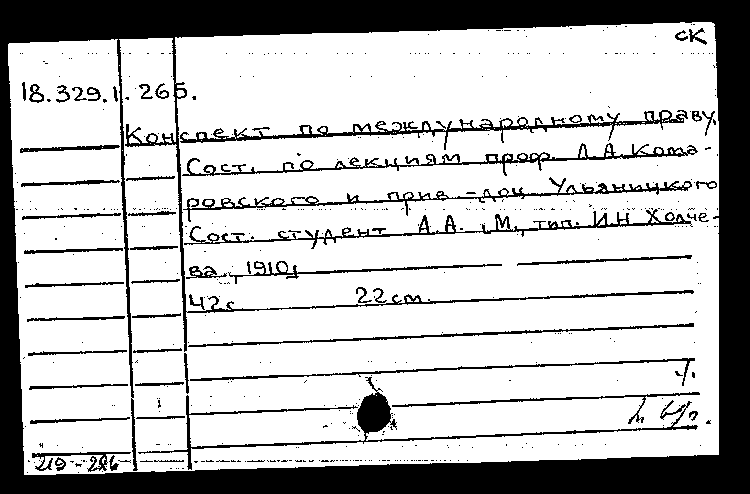 СК
18.329.1.265.
Конспект по международному праву.
Сост. по лекциям проф. Л.А. Кома-
ровского и прив.-доц. Ульяницкого
Сост. студент А.А. , М., тип. И.Н Холче-
ва, 1910,
42с 22 см.
219-286